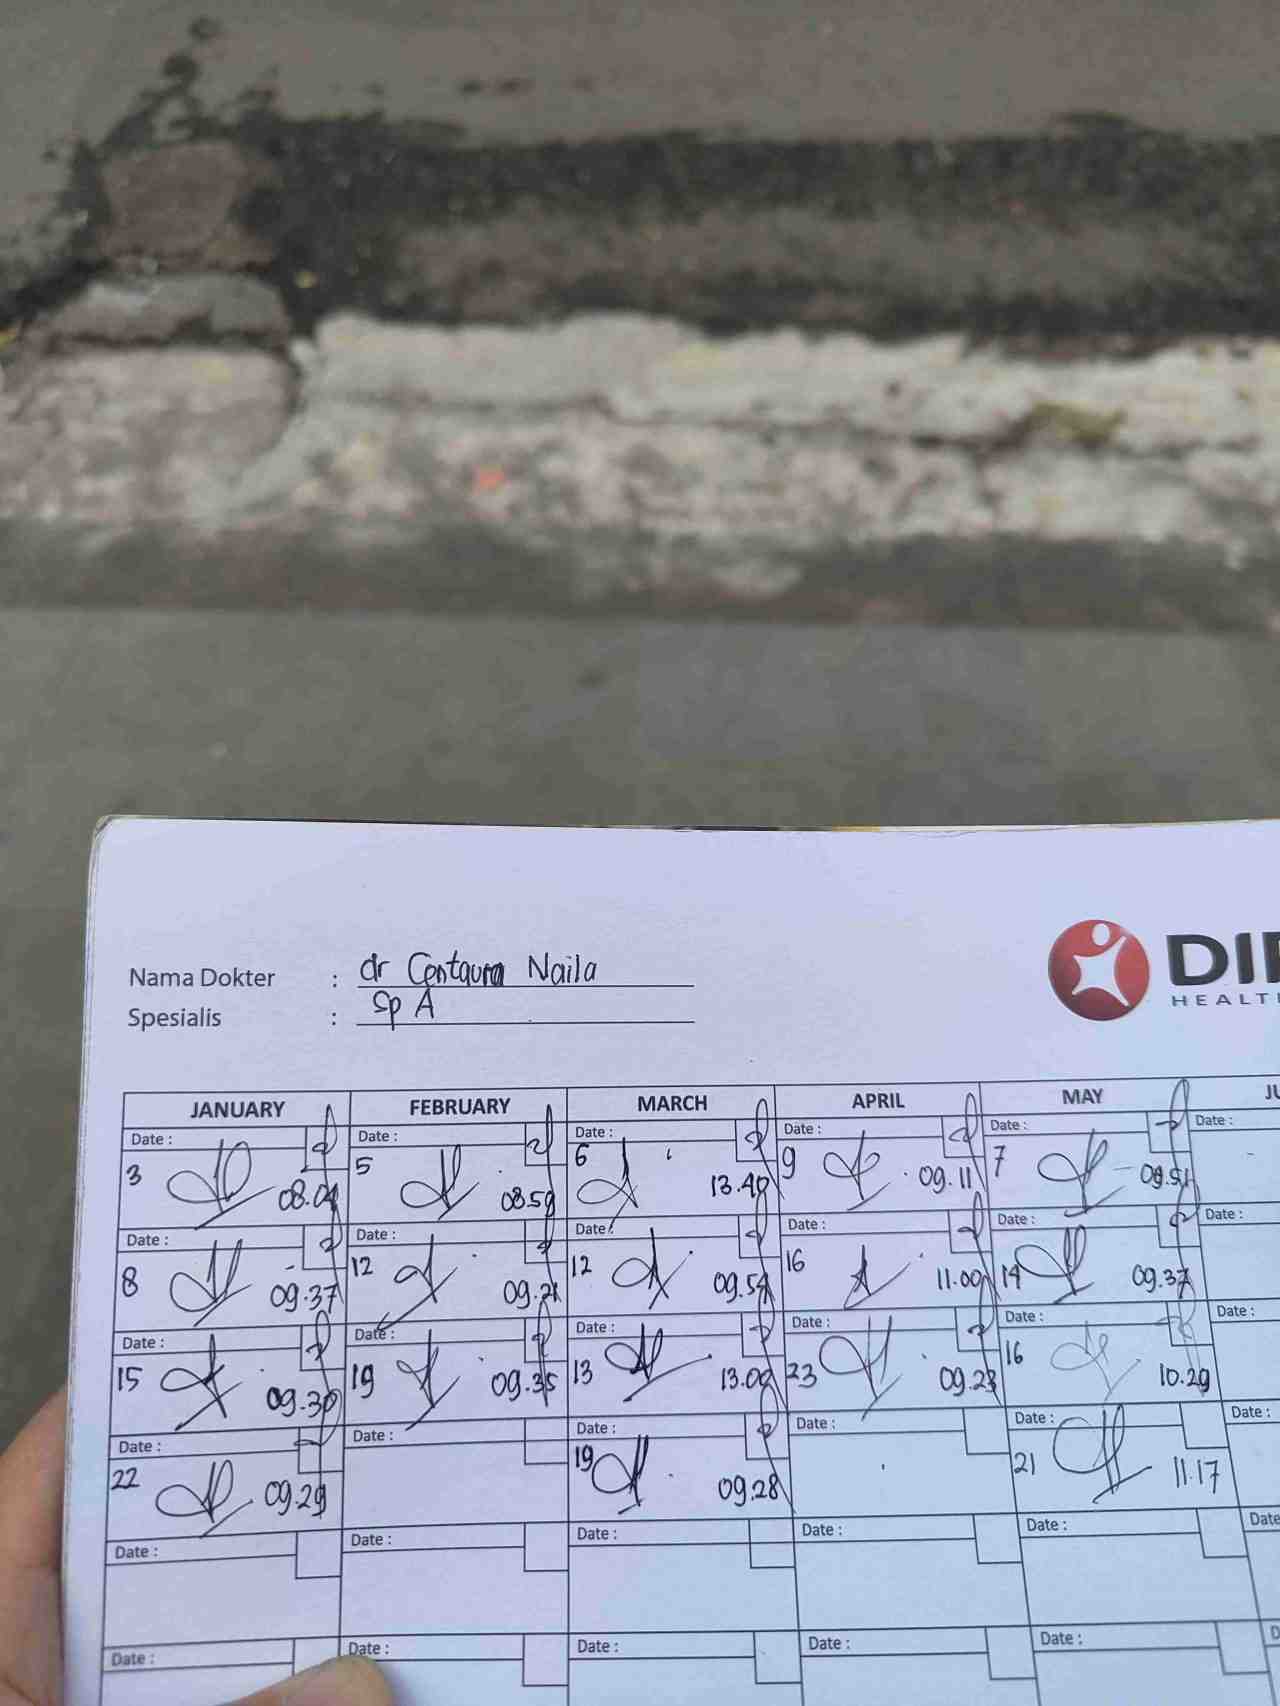 Nama Dokter : dr Centaura Naila
Spesialis : Sp A
DI
HEALT
JANUARY FEBRUARY MARCH APRIL MAY JU
Date : Date : Date : Date : Date : Date :
3 08.04 5 08.59 6 13.40 9 09.11 7 09.51
Date : Date : Date : Date : Date : Date :
8 09.37 12 09.21 12 09.54 16 11.00 14 09.37
Date : Date : Date : Date : Date : Date :
15 09.30 19 09.35 13 13.00 23 09.23 16 10.29
Date : Date : Date : Date : Date : Date :
22 09.29 19 09.28 21 11.17
Date : Date : Date : Date : Date : Date
Date : Date : Date : Date : Date : D